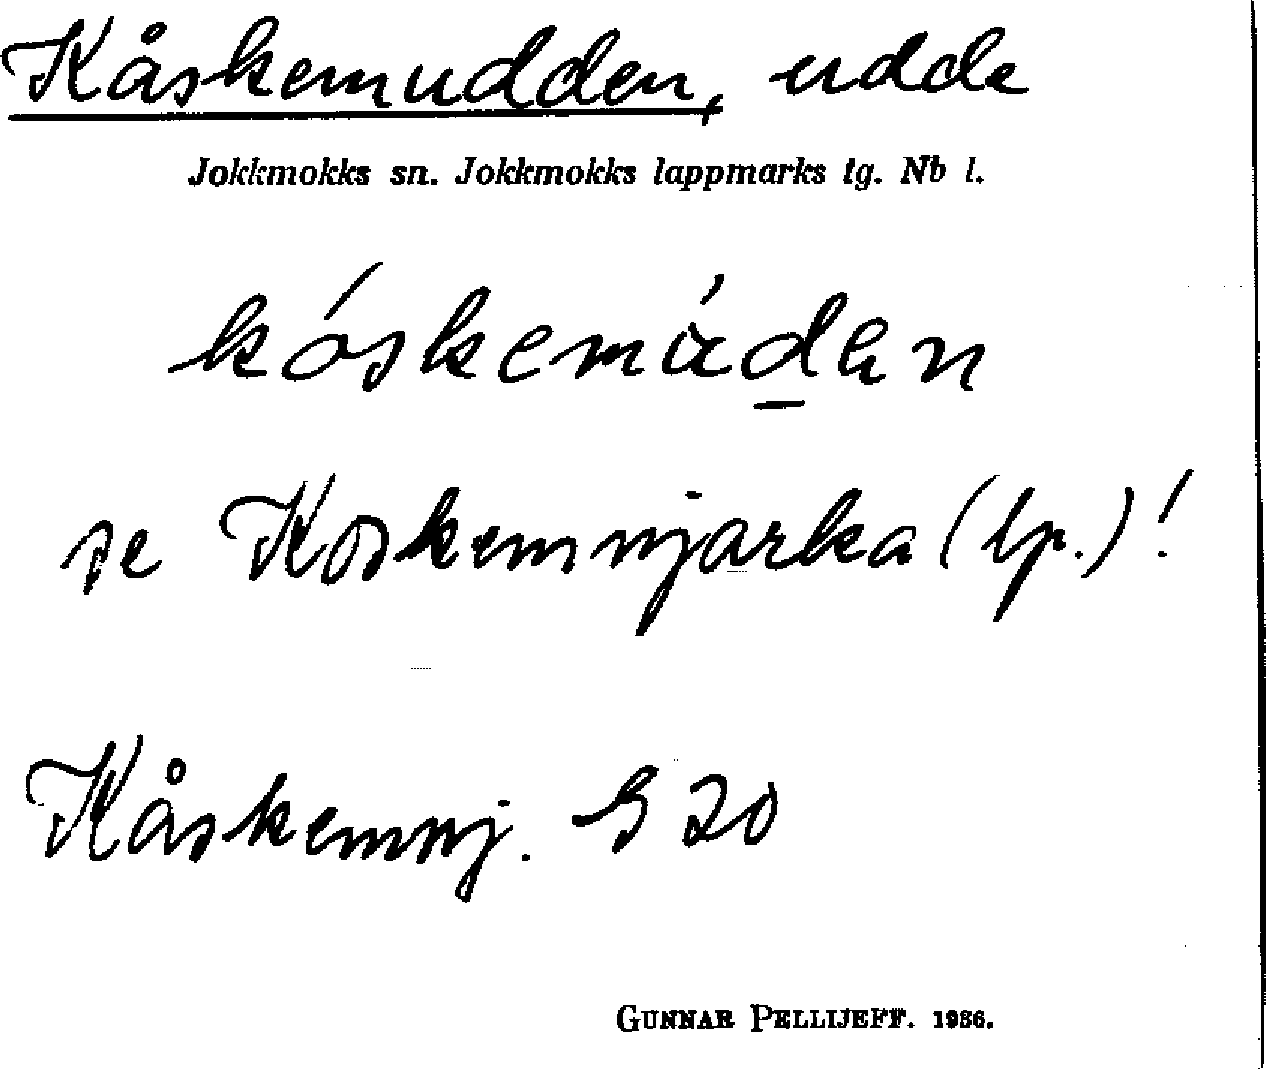 Kåskemudden, udde
Jokkmokks sn. Jokkmokks lappmarks tg. Nb l.
kóskemúdan
se Koskemnjarka (lp.)!
Kåskemnj. S 20
GUNNAR PELLIJEFF. 1936.